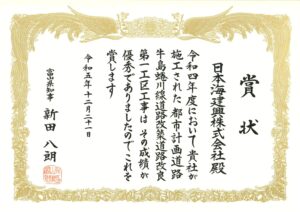 賞状
日本海建興株式会社殿
令和四年度において貴社が
施工された都市計画道路
牛島蜷川線道路改築道路改良
第一工区工事は その成績が
優秀でありましたのでこれを
賞します
令和五年十二月二十一日
富山県知事 新田八朗